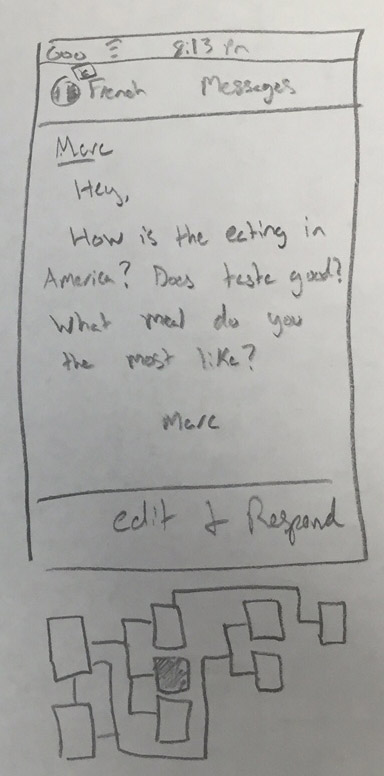 8:13 Pm
French Messages
Marc
Hey,
How is the eating in
America? Does taste good?
What meal do you
the most like?
Marc
edit & Respond